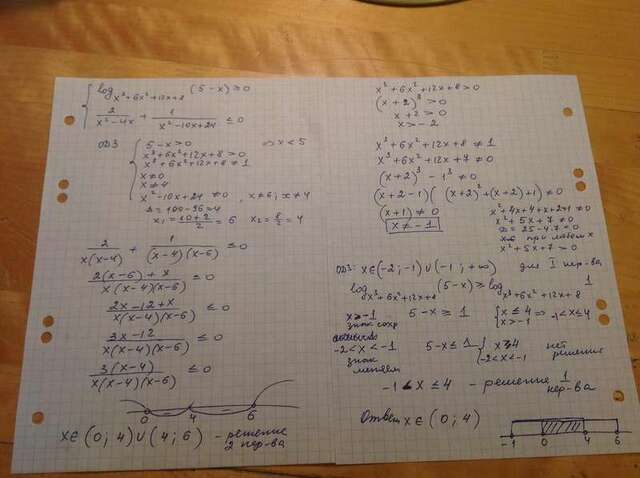 log x³+6x²+12x+8 (5-x) ≥ 0
2/(x²-4x) + 1/(x²-10x+24) ≤ 0
ОДЗ
5-x>0 => x<5
x³+6x²+12x+8>0
x³+6x²+12x+8≠1
x≠0
x≠4
x²-10x+24≠0, x≠6; x≠4
D=100-96=4
x₁=(10+2)/2=6 x₂=8/2=4
2/(x(x-4)) + 1/((x-4)(x-6)) ≤0
(2(x-6)+x)/(x(x-4)(x-6)) ≤0
(2x-12+x)/(x(x-4)(x-6)) ≤0
(3x-12)/(x(x-4)(x-6)) ≤0
3(x-4)/(x(x-4)(x-6)) ≤0
0 4 6
x∈(0;4)∪(4;6) - решение
2 нер-ва
x³+6x²+12x+8>0
(x+2)³>0
x+2>0
x>-2
x³+6x²+12x+8≠1
x³+6x²+12x+7≠0
(x+2)³-1³≠0
(x+2-1)((x+2)²+(x+2)+1)≠0
(x+1)≠0
x≠-1
x²+4x+4+x+2+1≠0
x²+5x+7≠0
D=25-4·7<0
при любом x
x²+5x+7>0
ОДЗ: x∈(-2;-1)∪(-1;+∞) для I нер-ва
log x³+6x²+12x+8 (5-x) ≥ log x³+6x²+12x+8 1
x>-1
знак сохр
5-x≥1
x≤4
x>-1 => -1<x≤4
-2<x<-1
знак
меняем
5-x≤1
x≥4
-2<x<-1
нет
решения
-1<x≤4 - решение 1
нер-ва
Ответ x∈(0;4)
-1 0 4 6